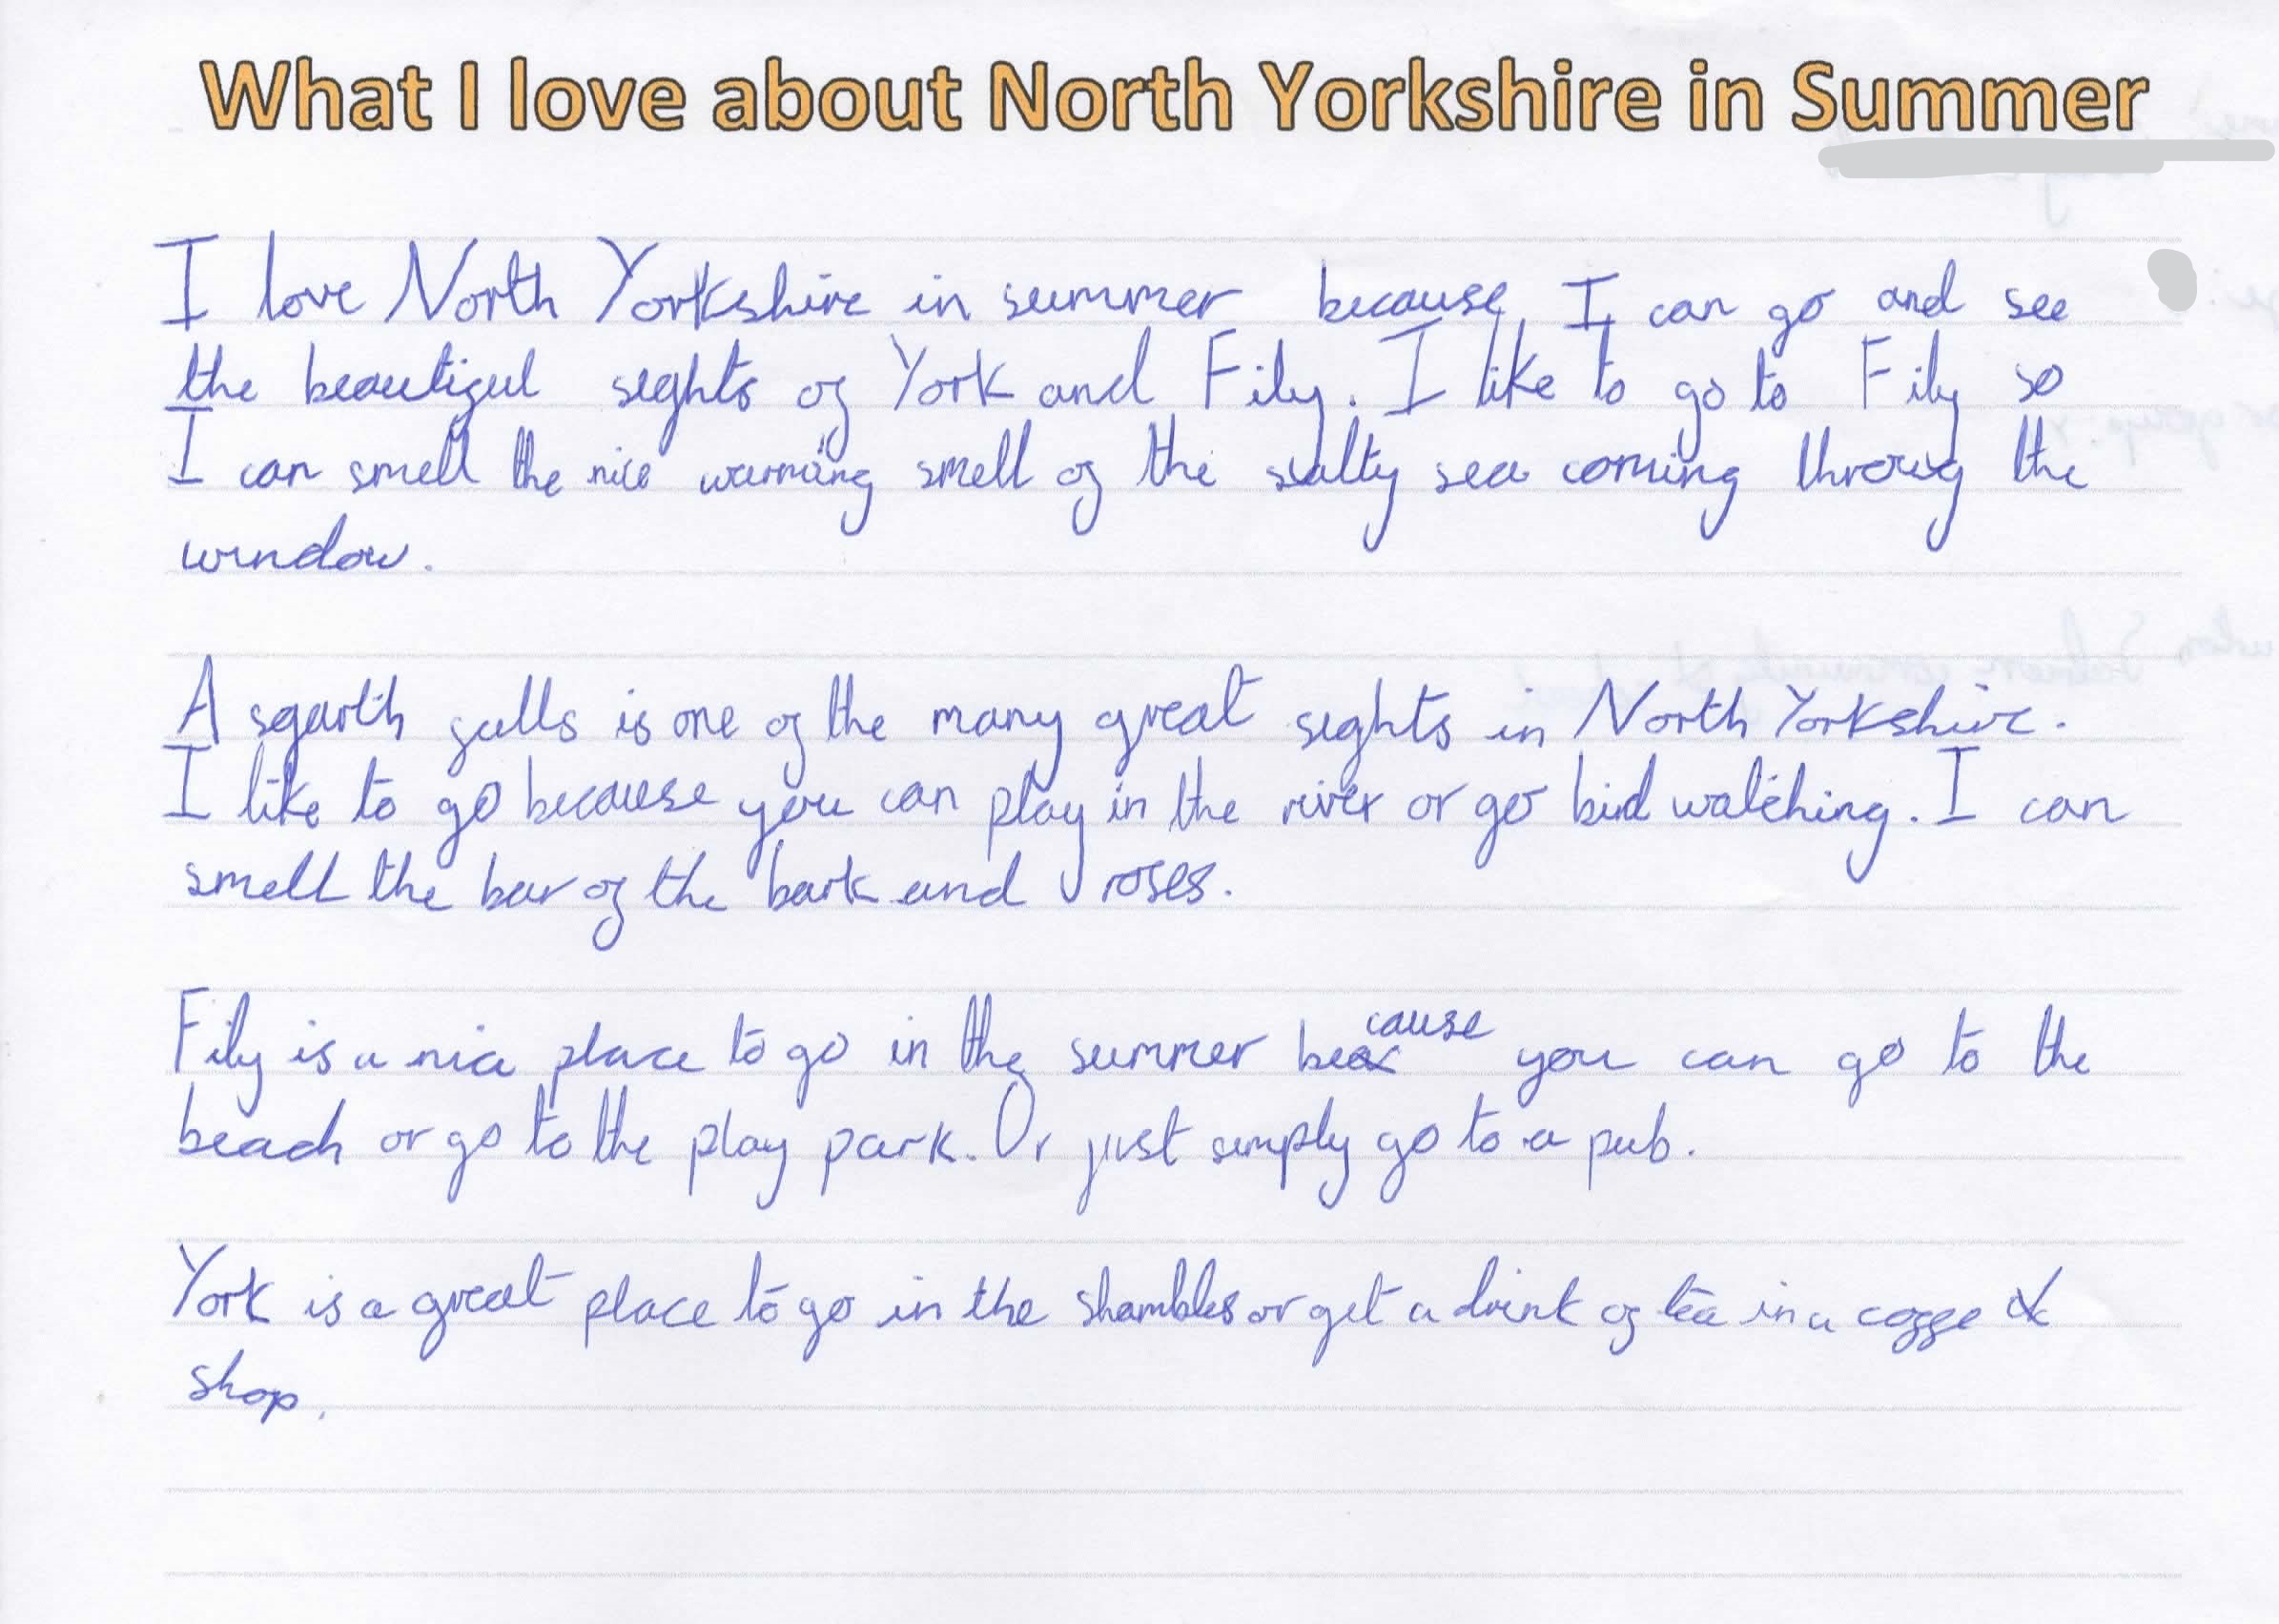 What I love about North Yorkshire in Summer
I love North Yorkshire in summer because I can go and see
the beautiful sights of York and Fily. I like to go to Fily so
I can smell the nice warming smell of the salty sea coming throug the
window.
Asgarth falls is one of the many great sights in North Yorkshire.
I like to go because you can play in the river or go bird watching. I can
smell the bar of the bark and roses.
Fily is a nice place to go in the summer because you can go to the
beach or go to the play park. Or just simply go to a pub.
York is a great place to go in the shambles or get a drink of tea in a coffe
shop.